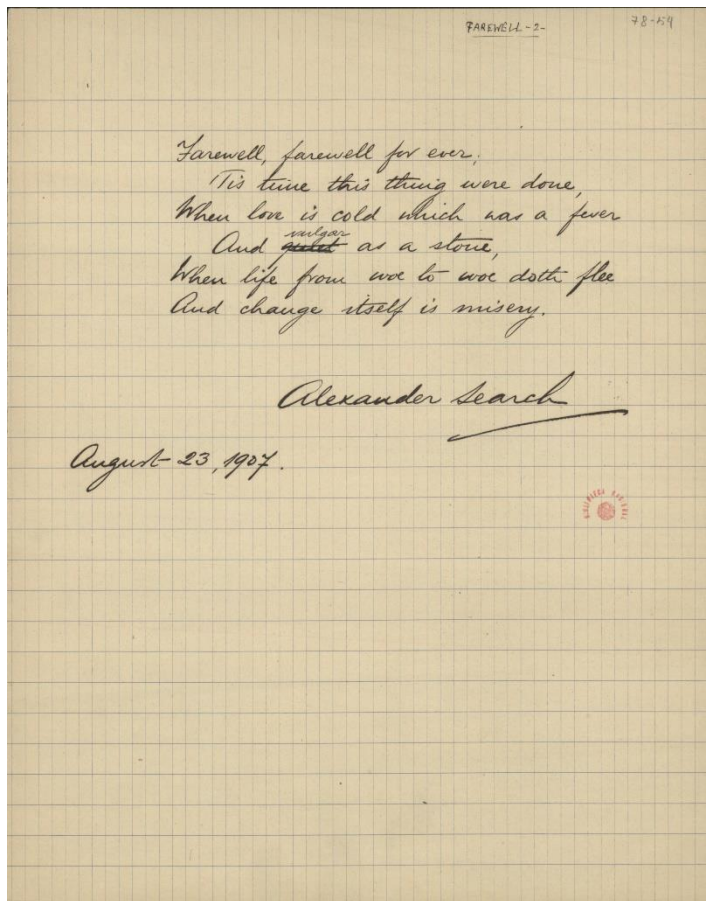 FAREWELL -2-
78-54
Farewell, farewell for ever,
'Tis time this thing were done,
When love is cold which was a fever
vulgar
And quiet as a stone,
When life from woe to woe doth flee
And change itself is misery.
Alexander Search
August 23, 1907.
BIBLIOTECA NACIONAL